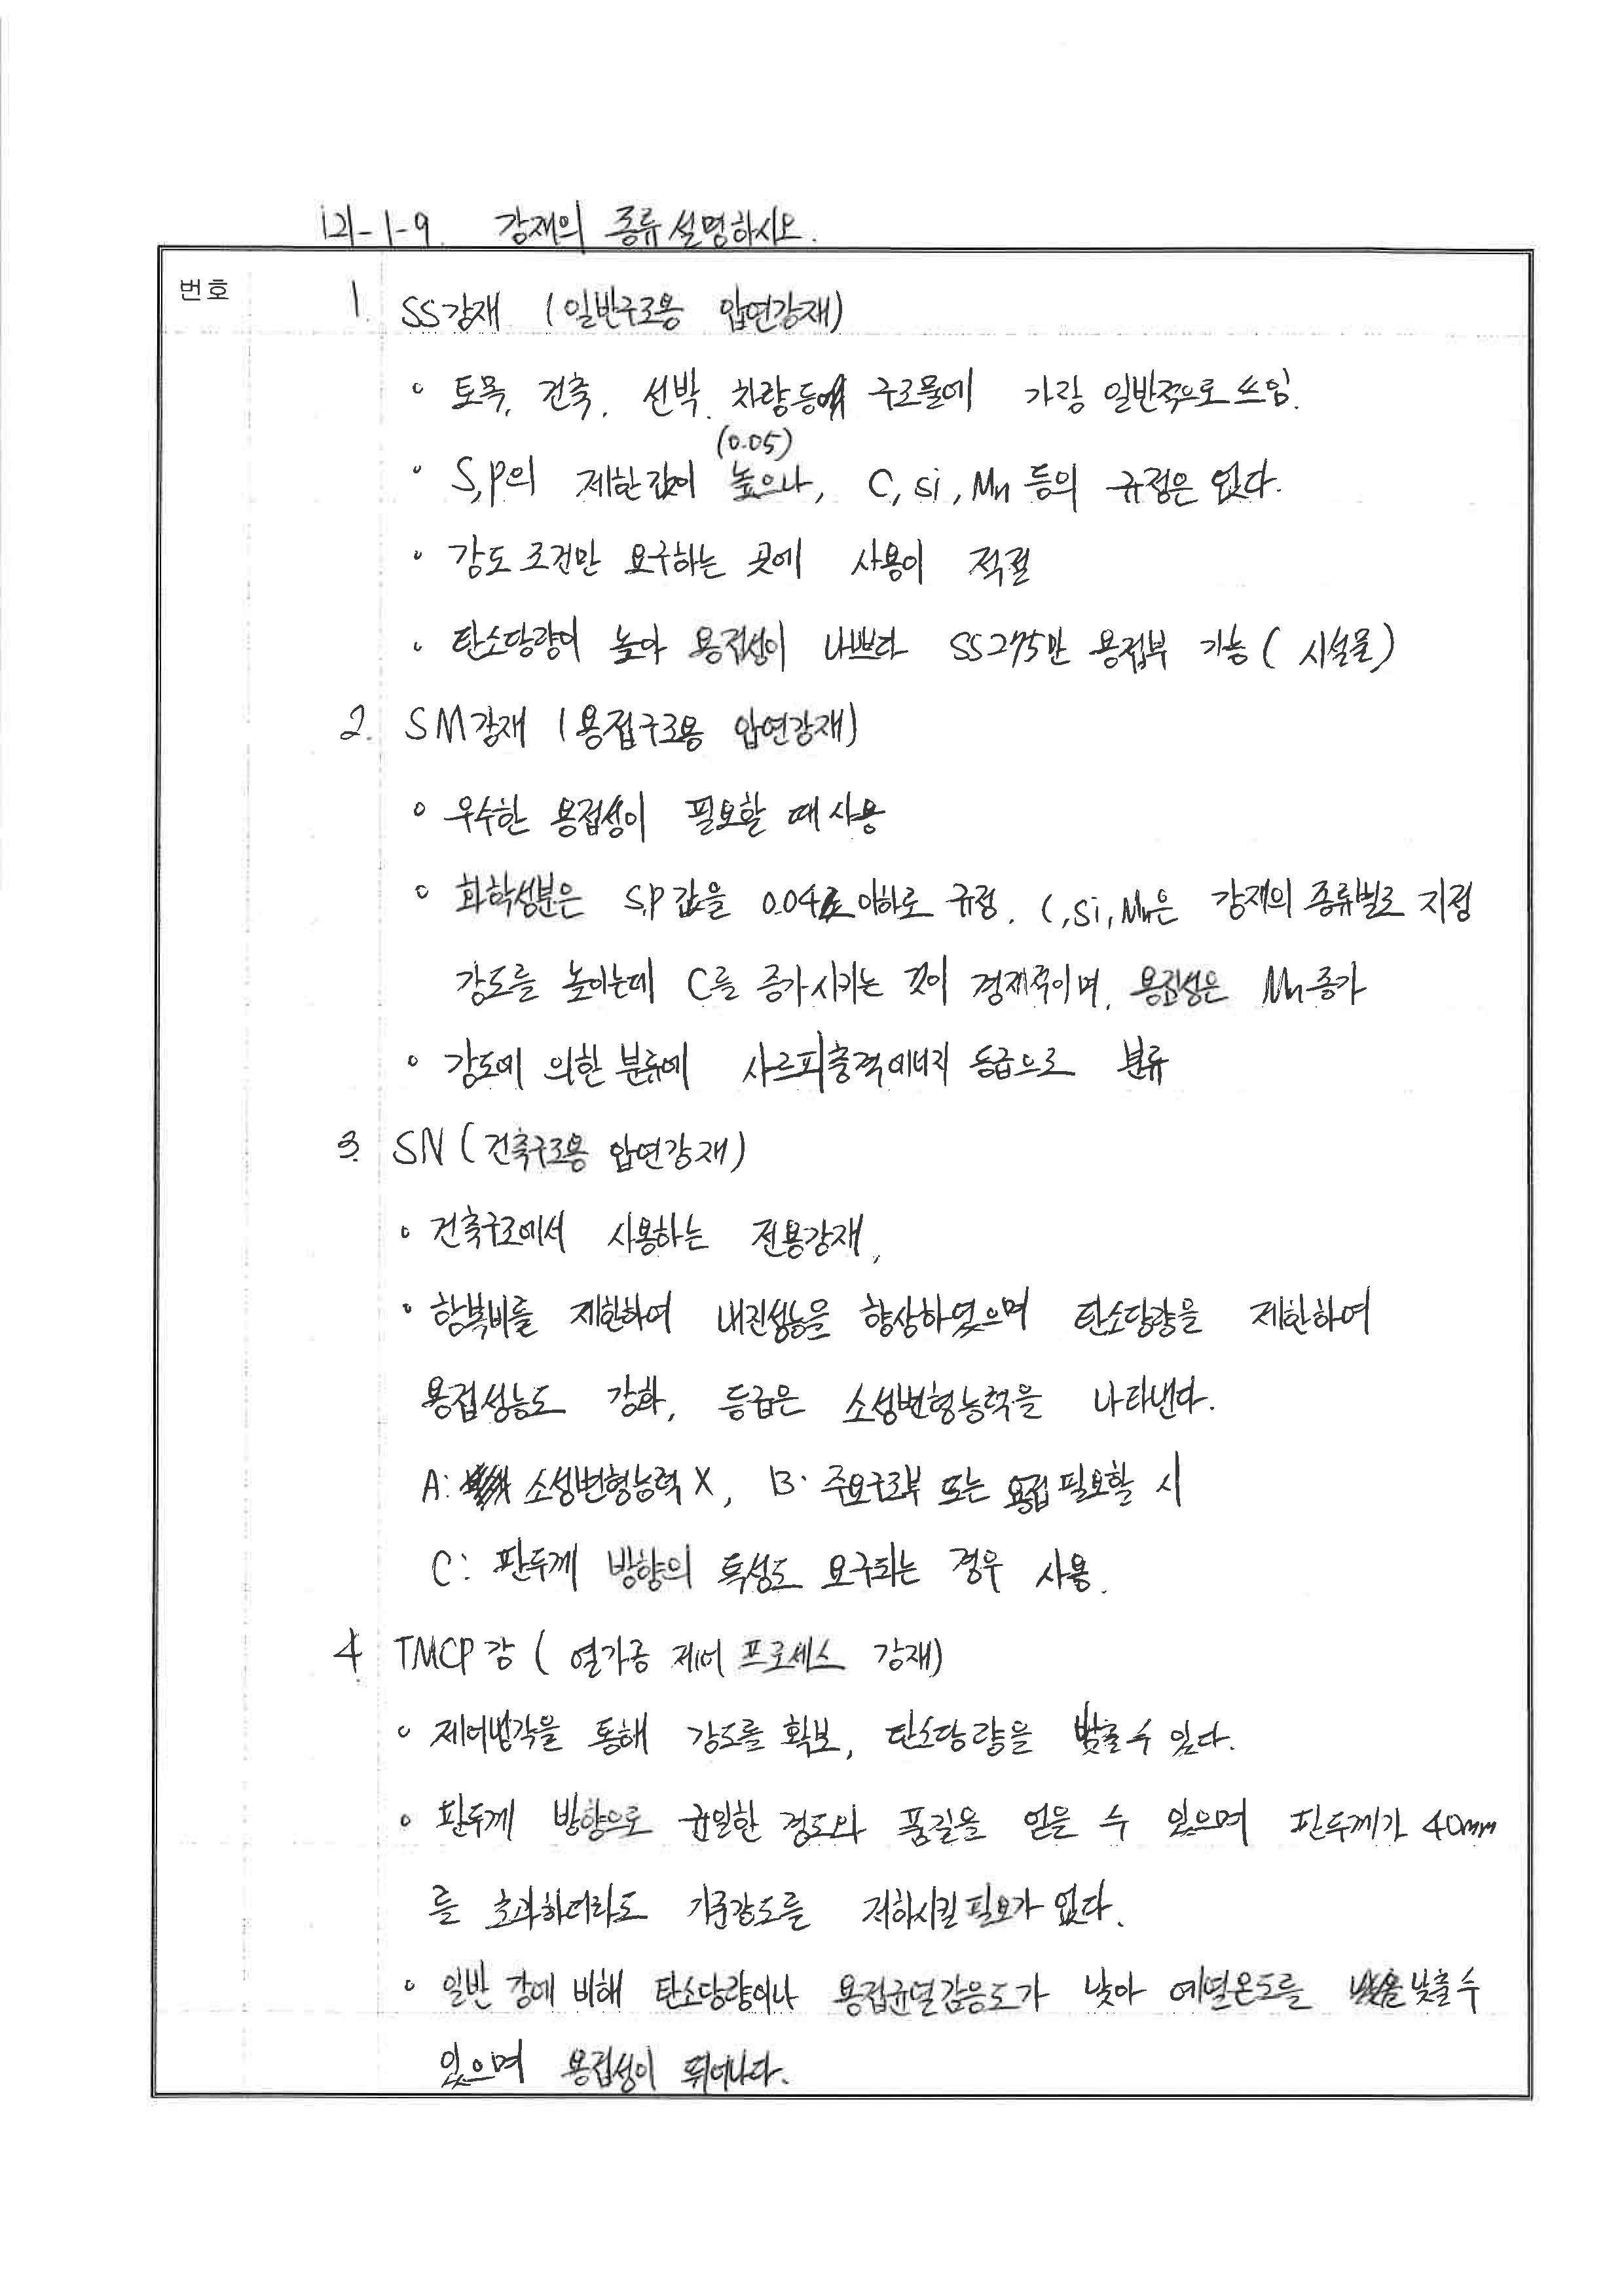 121-1-9. 강재의 종류 설명하시오.
번호
1. SS강재 (일반구조용 압연강재)
◦ 토목, 건축, 선박, 차량등에 구조물에 가장 일반적으로 쓰임.
(0.05)
◦ S,P의 제한값이 높으나, C, Si, Mn 등의 규정은 없다.
◦ 강도 조건만 요구하는 곳에 사용이 적절
◦ 탄소당량이 높아 용접성이 나쁘다 SS275만 용접부 가능 ( 시설물)
2. SM강재 (용접구조용 압연강재)
◦ 우수한 용접성이 필요할 때 사용
◦ 화학성분은 S,P 값을 0.04로 이하로 규정. C, Si, Mn은 강재의 종류별로 지정
강도를 높이는데 C를 증가시키는 것이 경제적이며, 용접성은 Mn 증가
◦ 강도에 의한 분류에 샤르피충격에너지 등급으로 분류
3. SN (건축구조용 압연강재)
◦ 건축구조에서 사용하는 전용강재,
◦ 항복비를 제한하여 내진성능을 향상하였으며 탄소당량을 제한하여
용접성능도 강화, 등급은 소성변형능력을 나타낸다.
A: 소성변형능력 X, B: 주요구조부 또는 용접 필요할 시
C: 판두께 방향의 특성도 요구되는 경우 사용.
4. TMCP강 ( 열가공 제어 프로세스 강재)
◦ 제어냉각을 통해 강도를 확보, 탄소당량을 낮출 수 있다.
◦ 판두께 방향으로 균일한 경도와 품질을 얻을 수 있으며 판두께가 40mm
를 초과하더라도 기준강도를 저하시킬 필요가 없다.
◦ 일반 강에 비해 탄소당량이나 용접균열감응도가 낮아 예열온도를 낮출 수
있으며 용접성이 뛰어나다.